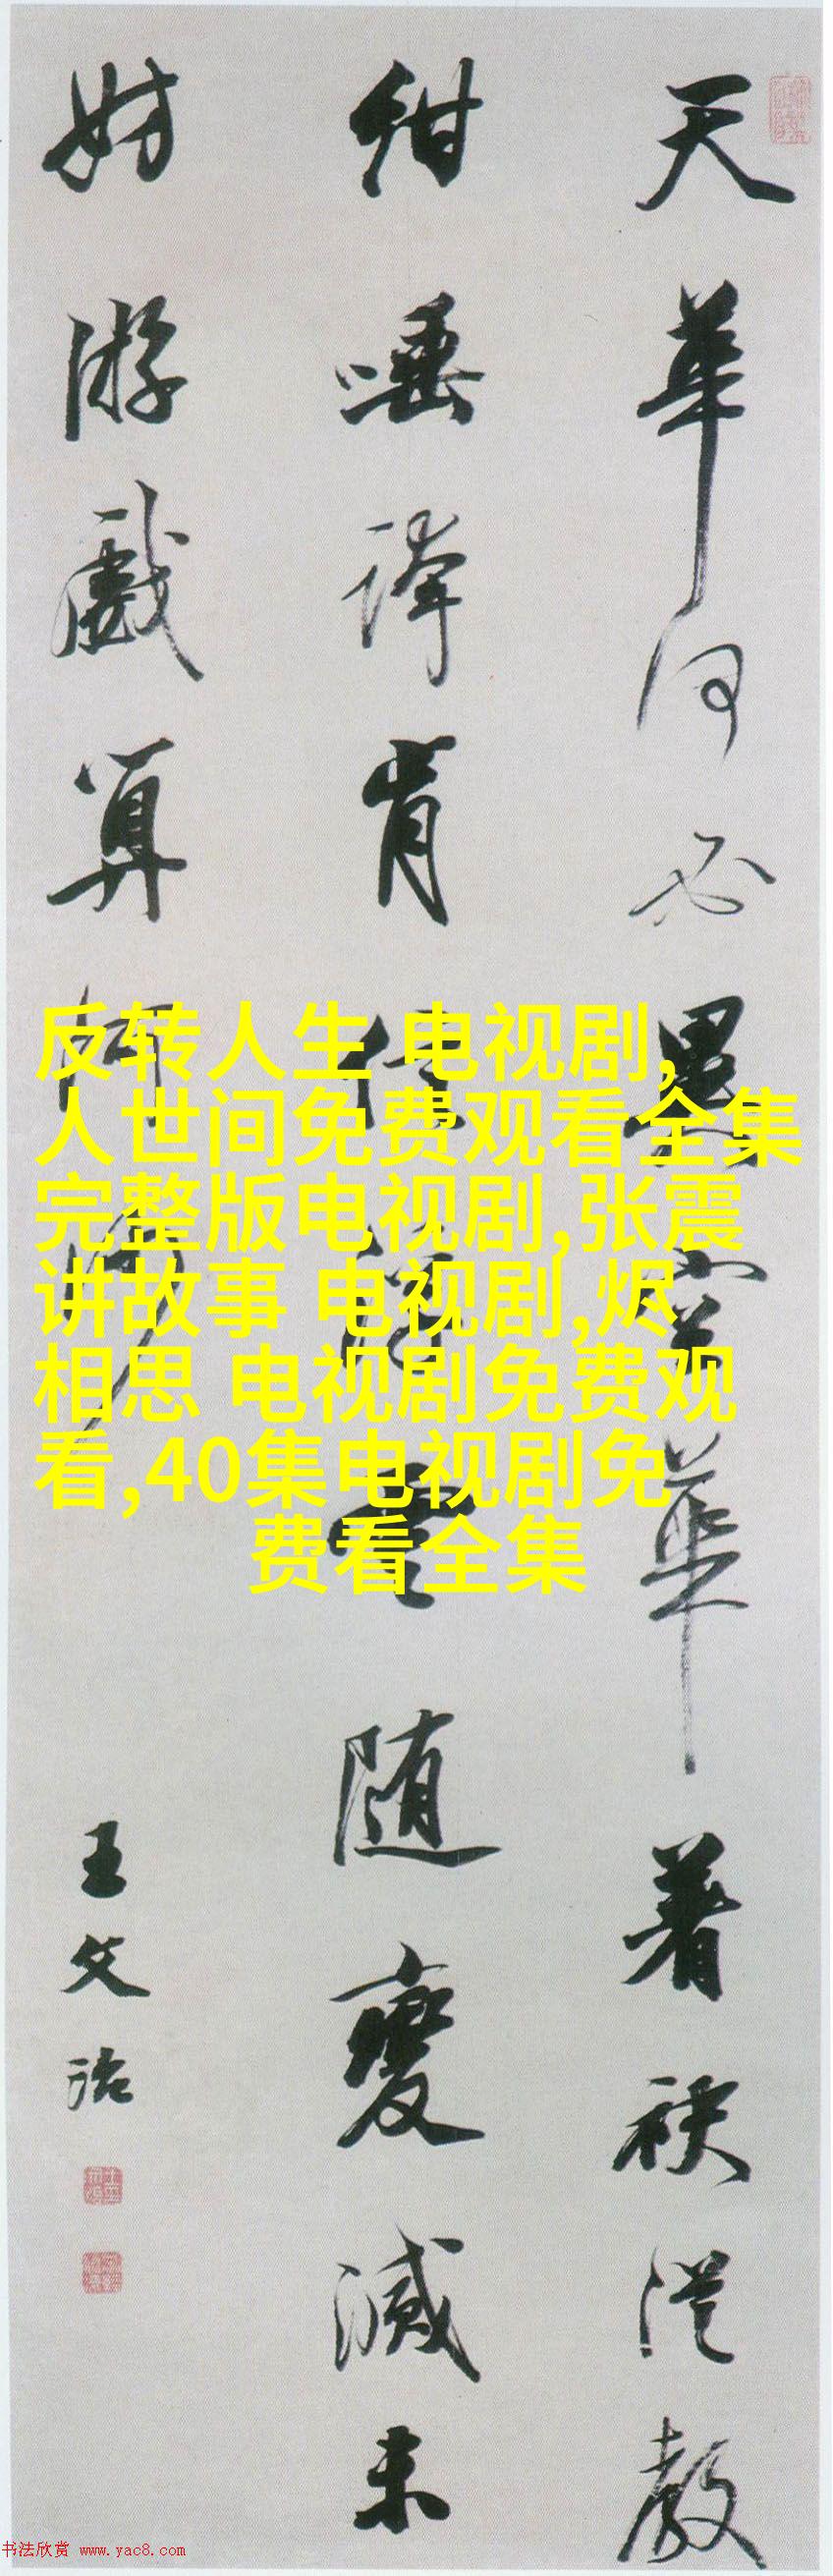 天華何必異雲華著袂從教
紺唾諱肯住浮雲随變滅未
妨游戲算河沙
王文治
反转人生 电视剧,
人世间免费观看全集
完整版电视剧,张震
讲故事 电视剧,烬
相思 电视剧免费观
看,40集电视剧免
费看全集
书法欣赏 www.yac8.com